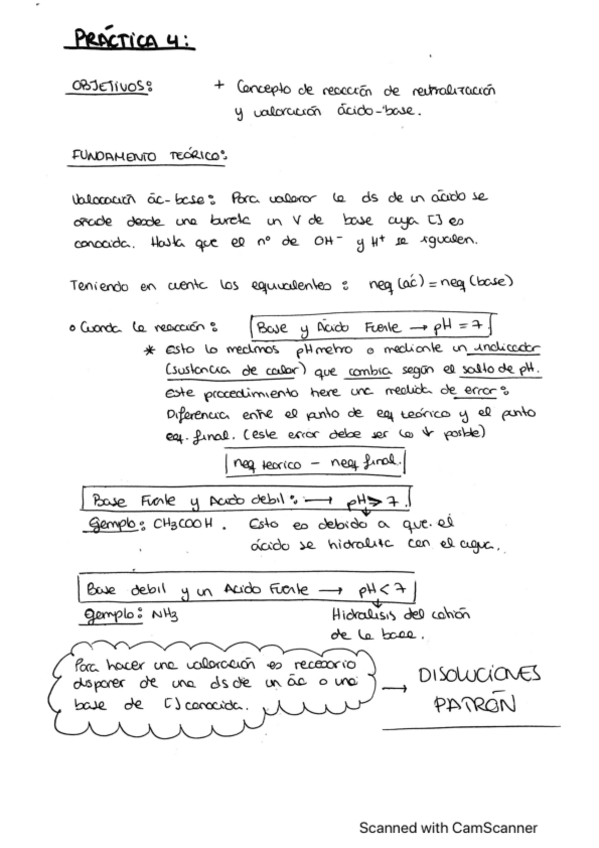 PRÁCTICA 4:
OBJETIVOS: + Concepto de reacción de neutralización
y valoración ácido-base.
FUNDAMENTO TEÓRICO:
Valoración ác-base: Para valorar la ds de un ácido se
añade desde una bureta un V de base cuya [] es
conocida. Hasta que el nº de OH⁻ y H⁺ se igualen.
Teniendo en cuenta los equivalentes: neq (ác) = neq (base)
o Cuando la reacción: Base y Ácido Fuerte → pH = 7
* Esto lo medimos pHmetro o mediante un indicador
(sustancia de color) que cambia según el salto de pH.
Este procedimiento tiene una medida de error:
Diferencia entre el punto de eq teórico y el punto
eq. final. (este error debe ser lo ↓ posible)
neq teorico - neq final.
Base Fuerte y Acido debil: → pH > 7.
Ejemplo: CH3COOH. Esto es debido a que el
ácido se hidroliza con el agua.
Base debil y un Acido Fuerte → pH < 7
Ejemplo: NH3 Hidrólisis del catión
de la base.
Para hacer una valoración es necesario
disponer de una ds de un ác o una
base de [] conocida. → DISOLUCIONES
PATRÓN
Scanned with CamScanner